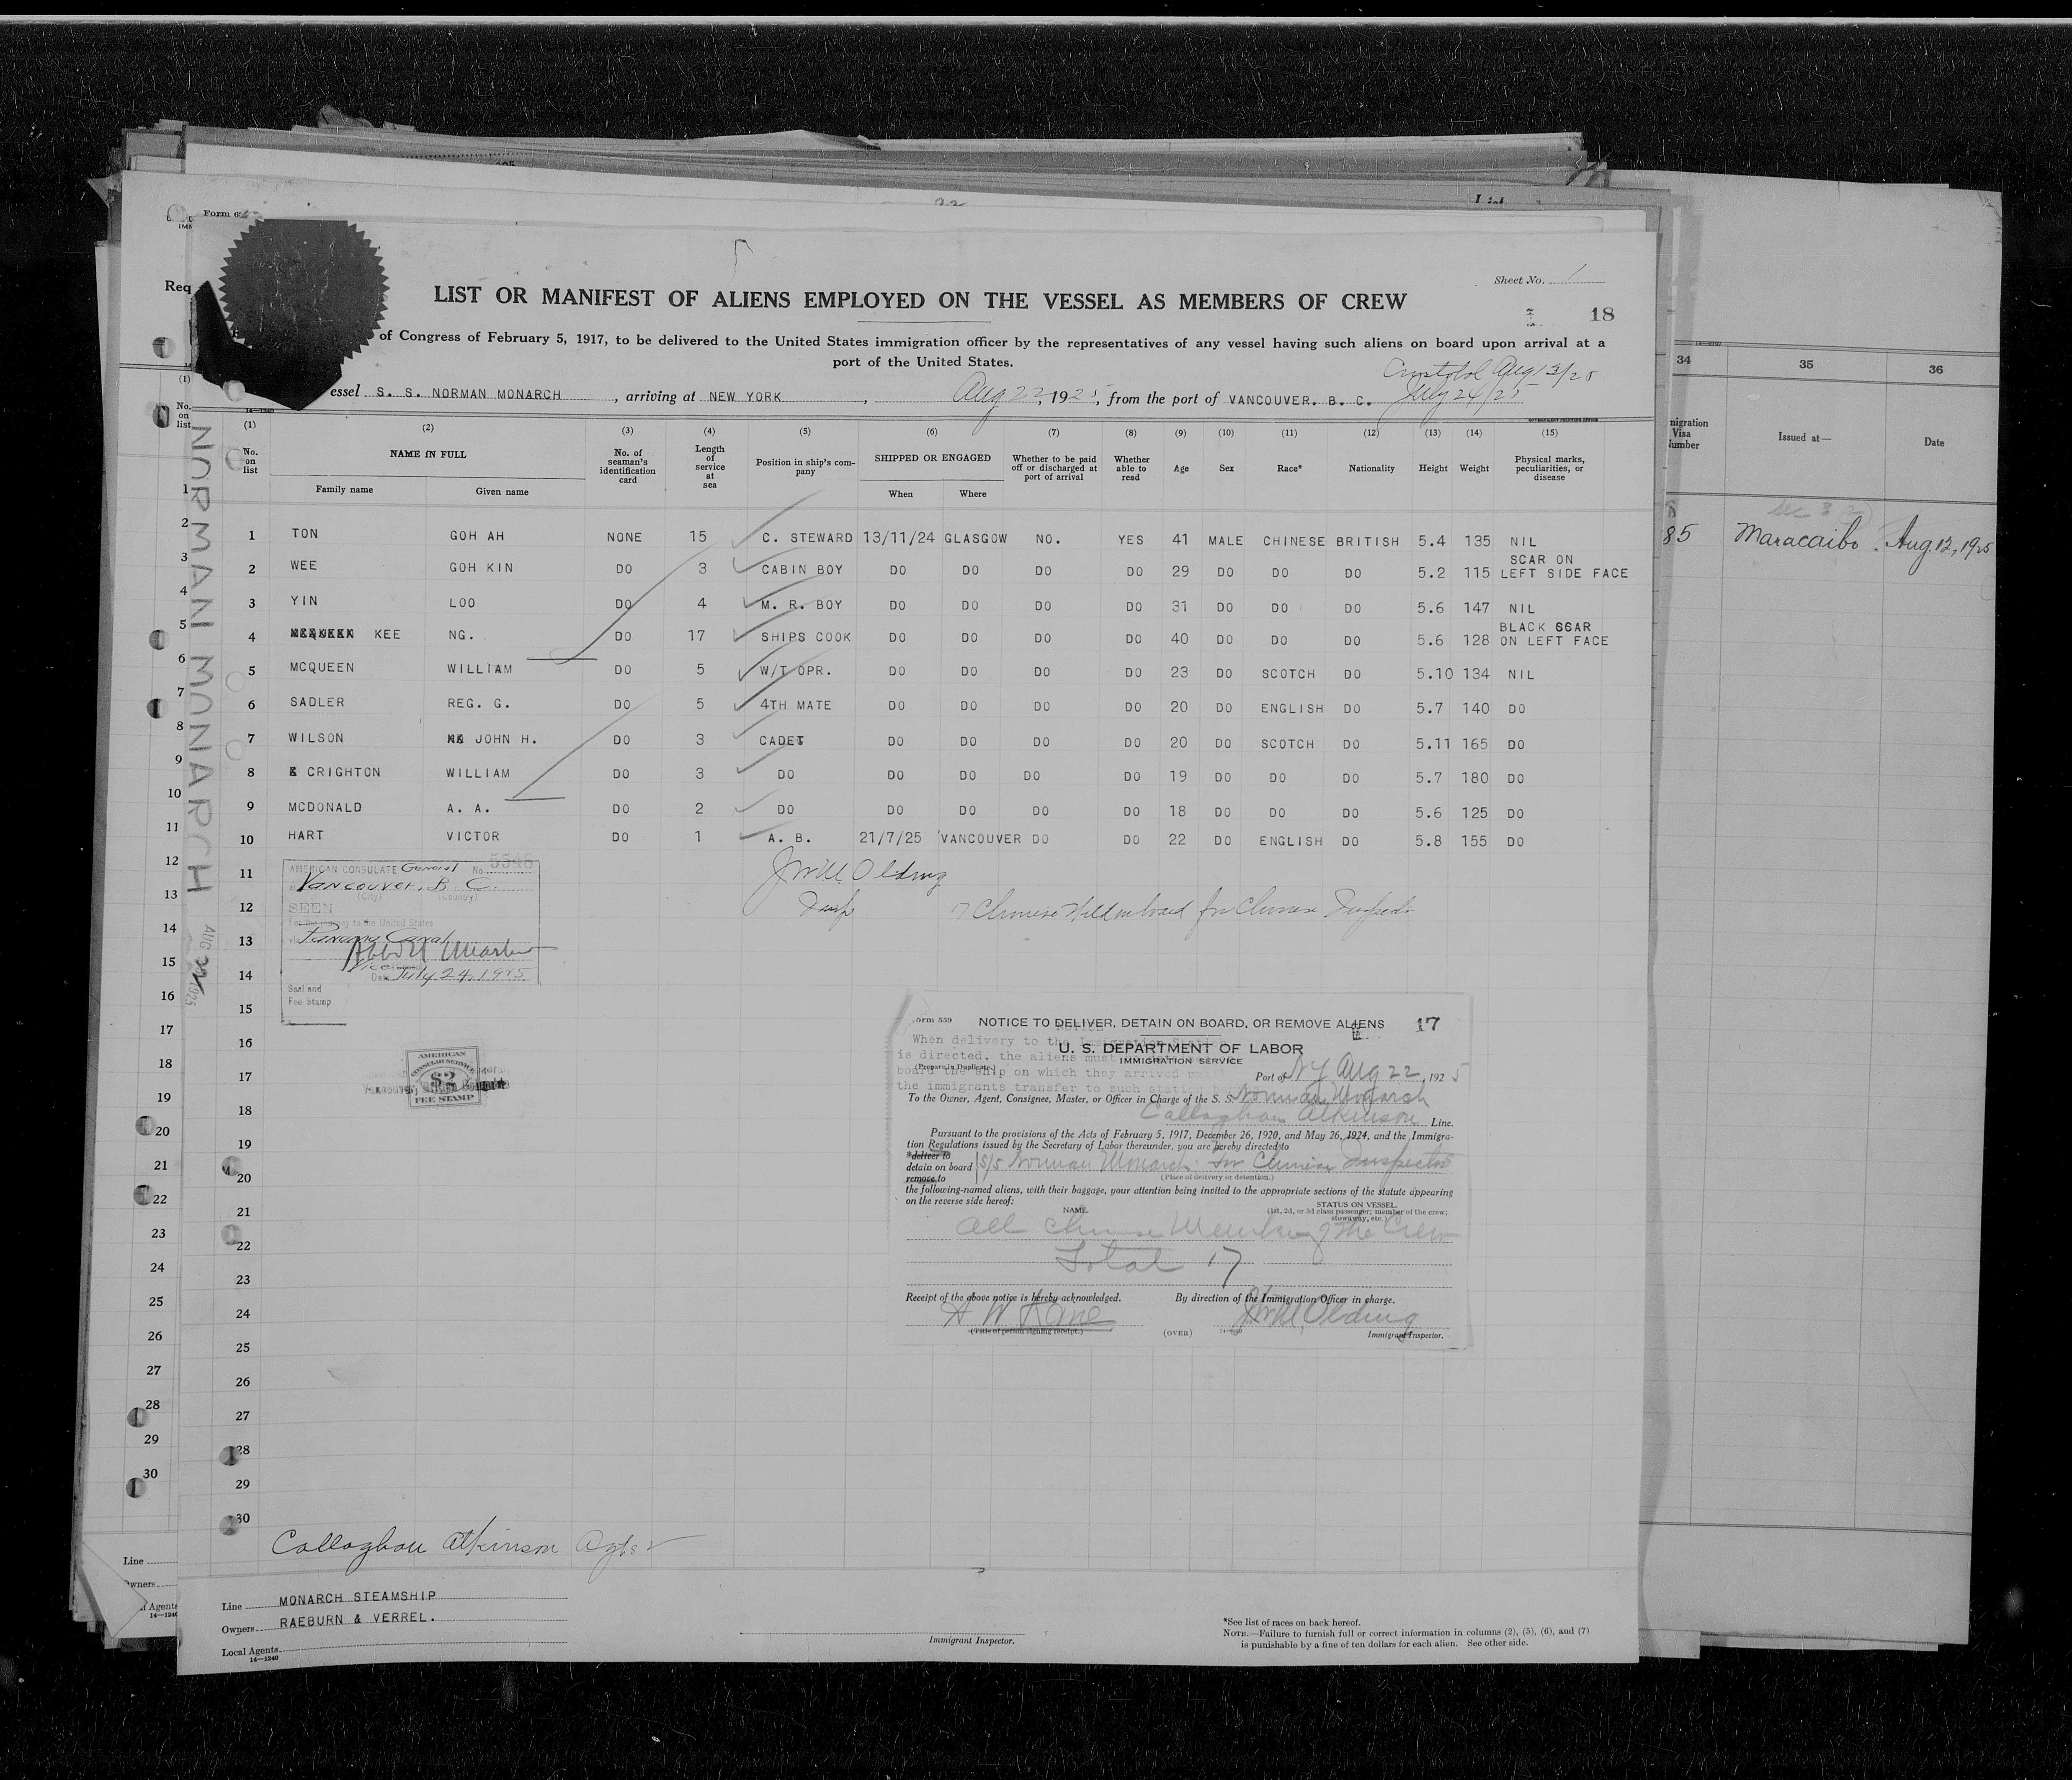 Form 6
Sheet No. 1
LIST OR MANIFEST OF ALIENS EMPLOYED ON THE VESSEL AS MEMBERS OF CREW
18
of Congress of February 5, 1917, to be delivered to the United States immigration officer by the representatives of any vessel having such aliens on board upon arrival at a
port of the United States.
Cristobal Aug 13/25
essel S. S. NORMAN MONARCH , arriving at NEW YORK , Aug 22, 1925, from the port of VANCOUVER. B. C. July 24/25
(1) (2) (3) (4) (5) (6) (7) (8) (9) (10) (11) (12) (13) (14) (15)
No. on list NAME IN FULL No. of seaman's identification card Length of service at sea Position in ship's company SHIPPED OR ENGAGED Whether to be paid off or discharged at port of arrival Whether able to read Age Sex Race* Nationality Height Weight Physical marks, peculiarities, or disease
Family name Given name When Where
1 TON GOH AH NONE 15 C. STEWARD 13/11/24 GLASGOW NO. YES 41 MALE CHINESE BRITISH 5.4 135 NIL
2 WEE GOH KIN DO 3 CABIN BOY DO DO DO DO 29 DO DO DO 5.2 115 SCAR ON LEFT SIDE FACE
3 YIN LOO DO 4 M. R. BOY DO DO DO DO 31 DO DO DO 5.6 147 NIL
4 KEE NG. DO 17 SHIPS COOK DO DO DO DO 40 DO DO DO 5.6 128 BLACK SCAR ON LEFT FACE
5 MCQUEEN WILLIAM DO 5 W/T OPR. DO DO DO DO 23 DO SCOTCH DO 5.10 134 NIL
6 SADLER REG. G. DO 5 4TH MATE DO DO DO DO 20 DO ENGLISH DO 5.7 140 DO
7 WILSON JOHN H. DO 3 CADET DO DO DO DO 20 DO SCOTCH DO 5.11 165 DO
8 CRIGHTON WILLIAM DO 3 DO DO DO DO DO 19 DO DO DO 5.7 180 DO
9 MCDONALD A. A. DO 2 DO DO DO DO DO 18 DO DO DO 5.6 125 DO
10 HART VICTOR DO 1 A. B. 21/7/25 VANCOUVER DO DO 22 DO ENGLISH DO 5.8 155 DO
11
12
13
14
15
16
17
18
19
20
21
22
23
24
25
26
27
28
29
30
AMERICAN CONSULATE General No. 5546
at Vancouver, B. C.
(City) (Country)
SEEN
For the journey to the United States
via Panama Canal
Vice
Date July 24, 1925
Seal and
Fee Stamp
AMERICAN
CONSULAR SERVICE
$2
FEE STAMP
Olding
Insp
17 Chinese Held on board for Chinese Inspector
NORMAN MONARCH AUG 22 1925
Form 559 NOTICE TO DELIVER, DETAIN ON BOARD, OR REMOVE ALIENS 17
U. S. DEPARTMENT OF LABOR
IMMIGRATION SERVICE
(Prepare in Duplicate.)
Port of NY Aug 22, 1925
To the Owner, Agent, Consignee, Master, or Officer in Charge of the S. S. Norman Monarch
Callaghan Atkinson Line.
Pursuant to the provisions of the Acts of February 5, 1917, December 26, 1920, and May 26, 1924, and the Immigra-
tion Regulations issued by the Secretary of Labor thereunder, you are hereby directed to
*deliver to
detain on board S/S Norman Monarch for Chinese Inspector
remove to (Place of delivery or detention.)
the following-named aliens, with their baggage, your attention being invited to the appropriate sections of the statute appearing
on the reverse side hereof:
NAME. STATUS ON VESSEL.
(1st, 2d, or 3d class passenger; member of the crew; stowaway, etc.)
All Chinese Members of the Crew
Total 17
Receipt of the above notice is hereby acknowledged. By direction of the Immigration Officer in charge.
H W Kane Olding
(Title of person signing receipt.) (OVER) Immigrant Inspector.
Callaghan Atkinson Agts
Line MONARCH STEAMSHIP
Owners RAEBURN & VERREL.
Local Agents
14—1240
Immigrant Inspector.
*See list of races on back hereof.
NOTE.—Failure to furnish full or correct information in columns (2), (5), (6), and (7)
is punishable by a fine of ten dollars for each alien. See other side.
34 35 36
Visa Issued at— Date
85 Maracaibo Aug. 12, 1925